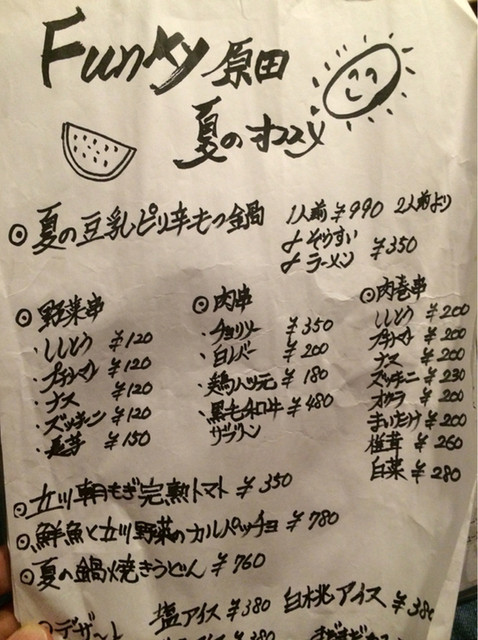 Funky 原田
夏のオススメ
◎夏の豆乳ピリ辛もつ鍋 1人前¥990 2人前より
+ぞうすい
+ラーメン ¥350
◎野菜串
・ししとう ¥120
・プチトマト ¥120
・ナス ¥120
・ズッキーニ ¥120
・長芋 ¥150
◎肉串
・チョリソー ¥350
・白レバー ¥200
・鶏ハツ元 ¥180
・黒毛和牛 ¥480
サーロイン
◎肉巻串
ししとう ¥200
プチトマト ¥200
ナス ¥200
ズッキーニ ¥230
オクラ ¥200
まいたけ ¥200
椎茸 ¥260
白菜 ¥280
◎立川朝もぎ完熟トマト ¥350
◎鮮魚と立川野菜のカルパッチョ ¥780
◎夏の鍋焼きうどん ¥760
◎デザート 塩アイス ¥380 白桃アイス ¥380
アイス ¥380